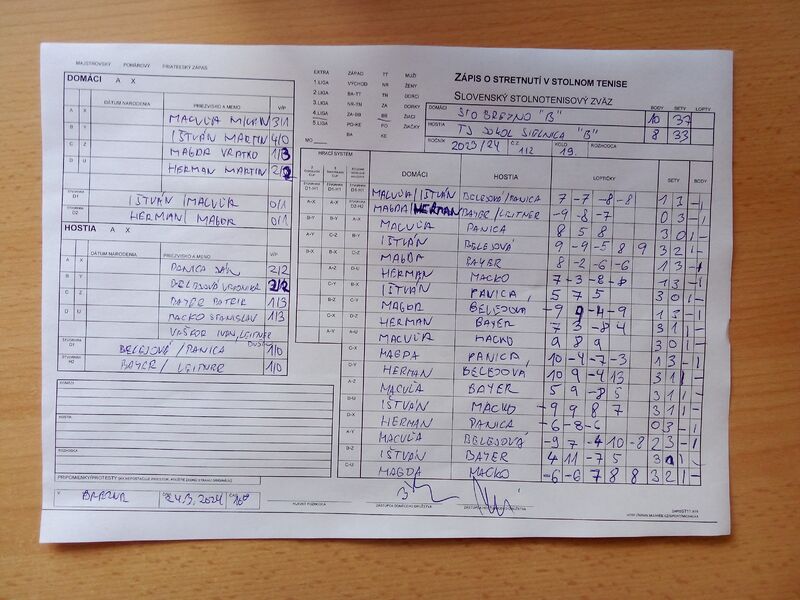 MAJSTROVSKÝ POHÁROVÝ PRIATEĽSKÝ ZÁPAS
DOMÁCI A X
DÁTUM NARODENIA PRIEZVISKO A MENO V/P
A X MACUĽA MILAN 3/1
B Y IŠTVÁN MARTIN 4/0
C Z MAGDA VRATKO 1/3
D U HERMAN MARTIN
ŠTVORHRA D1 IŠTVÁN / MACUĽA 0/1
ŠTVORHRA D2 HERMAN / MAGDA 0/1
HOSTIA A X
DÁTUM NARODENIA PRIEZVISKO A MENO V/P
A X PANICA JÁN 2/2
B Y BELEJOVÁ VERONIKA 2/2
C Z BAYER PATRIK 1/3
D U MACKO STANISLAV 1/3
VAŠKOR IVAN, LEITNER
ŠTVORHRA D1 BELEJOVÁ / PANICA 1/0
ŠTVORHRA D2 BAYER / LEITNER 1/0
DOMÁCI
HOSTIA
ROZHODCA
PRIPOMIENKY/PROTESTY
24.3.2024
HLAVNÝ ROZHODCA ZÁSTUPCA DOMÁCEHO DRUŽSTVA
EXTRA ZÁPAD TT MUŽI
1.LIGA VÝCHOD NR ŽENY
2.LIGA BA-TT TN DORCI
3.LIGA NR-TN ZA DORKY
4.LIGA ZA-BB BB ŽIACI
5.LIGA PO-KE PO ŽIAČKY
BA KE
MO
ZÁPIS O STRETNUTÍ V STOLNOM TENISE
SLOVENSKÝ STOLNOTENISOVÝ ZVÄZ
BODY SETY LOPTY
DOMÁCI ŠTO BREZNO "B" 10 37
HOSTIA TJ SOKOL SIELNICA "B" 8 33
ROČNÍK 2023/24 Č.Z. 112 KOLO 19. ROZHODCA
HRACÍ SYSTÉM DOMÁCI HOSTIA LOPTIČKY SETY BODY
MACUĽA/IŠTVÁN BELEJOVÁ/PANICA 7 -7 -8 -8 1 3 -1
MAGDA/HERMAN BAYER/LEITNER -9 -8 -7 0 3 -1
MACUĽA PANICA 8 5 8 3 0 1 -
IŠTVÁN BELEJOVÁ 9 -9 -5 8 9 3 2 1 -
MAGDA BAYER 8 -2 -6 -6 1 3 -1
HERMAN MACKO 7 -3 -8 -8 1 3 -1
IŠTVÁN PANICA 5 7 5 3 0 1 -
MAGDA BELEJOVÁ -9 9 -4 -9 1 3 -1
HERMAN BAYER 7 3 -8 4 3 1 1 -
MACUĽA MACKO 9 8 9 3 0 1 -
MAGDA PANICA 10 -4 -7 -3 1 3 -1
HERMAN BELEJOVÁ 10 9 -4 13 3 1 1 -
MACUĽA BAYER 5 9 -8 5 3 1 1 -
IŠTVÁN MACKO -9 9 8 7 3 1 1 -
HERMAN PANICA -6 -8 -6 0 3 -1
MACUĽA BELEJOVÁ -9 7 -4 10 -8 2 3 -1
IŠTVÁN BAYER 4 11 -7 5 3 1 1 -
MAGDA MACKO -6 -6 7 8 8 3 2 1 -